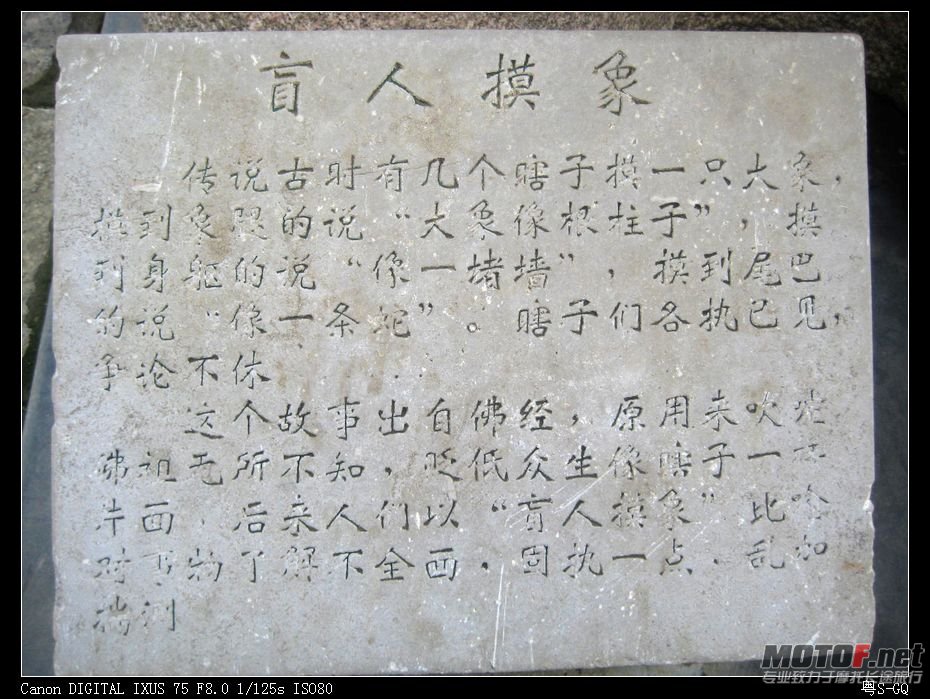 盲人摸象
传说古时有几个瞎子摸一只大象,
摸到象腿的说“大象像根柱子”,摸
到身躯的说“像一堵墙”,摸到尾巴
的说“像一条蛇”。瞎子们各执已见,
争论不休
这个故事出自佛经,原用来吹
佛祖无所不知,贬低众生像瞎子一
片面.后来人们以“盲人摸象”比
对事物了解不全面.固执一点.乱加
揣测
MOTOF.net
专业致力于摩托长途旅行
Canon DIGITAL IXUS 75 F8.0 1/125s ISO80
粤S-GQ